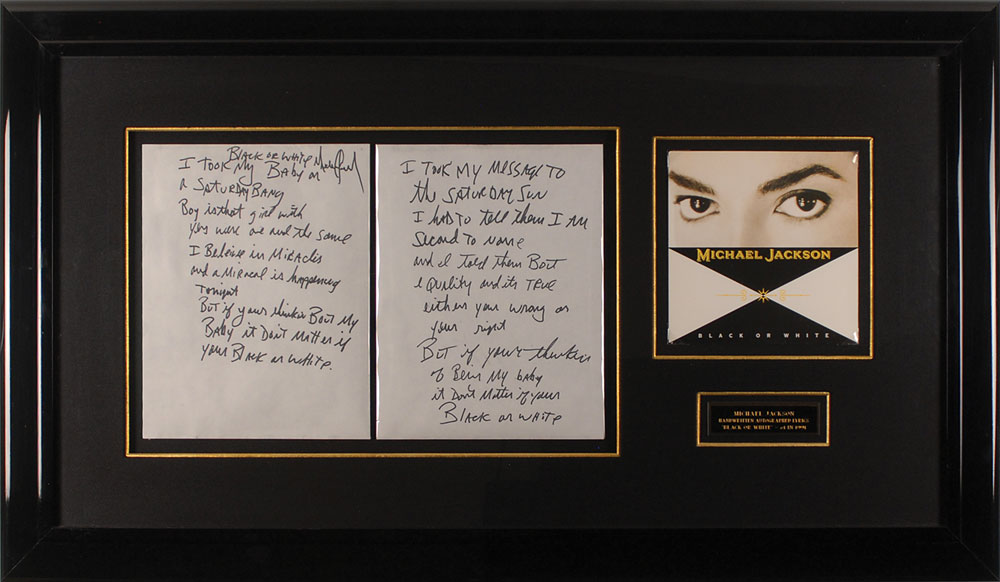 BLACK OR WHITE
I TOOK MY BABY ON
A SATURDAY BANG
Boy is that girl with
you were one and the same
I Believe in Miracles
and a Miracal is happening
Tonight
But if your thinkin Bout My
BABY it Don't Matter if
your BLACK or wHITE.
I TOOK MY MESSAGE TO
the SATURDAY SUN
I HAD TO tell them I AM
Second To NONE
and I Told them Bout
equality and its TRUE
either your wrong or
your right
But if your thinkin
of Bein My baby
it Don't Matter if your
BLACK or wHITE
MICHAEL JACKSON
BLACK OR WHITE
MICHAEL JACKSON
HANDWRITTEN AUTOGRAPHED LYRICS
"BLACK OR WHITE" - #1 IN 1991